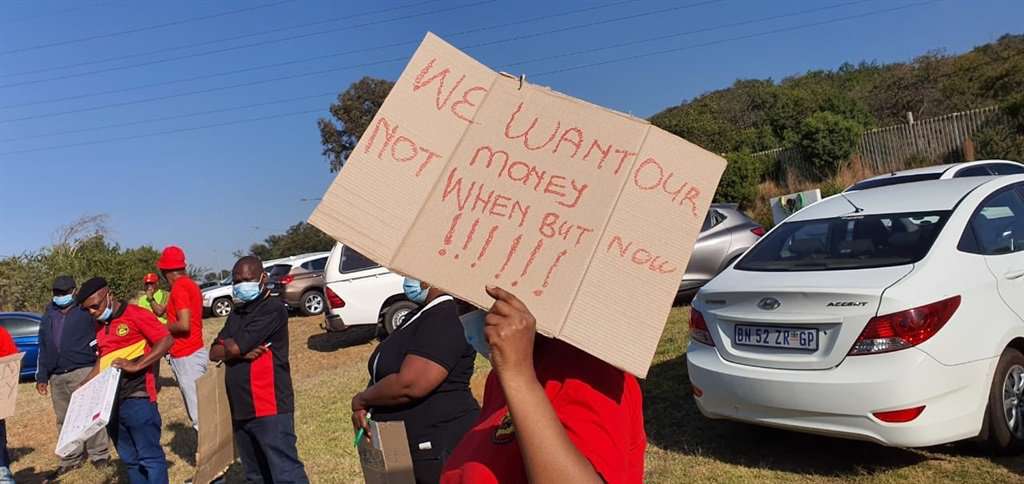 WE WANT OUR
NOT MONEY
WHEN BUT NOW
!!!!!!!
ACCENT
BN 52 ZR GP